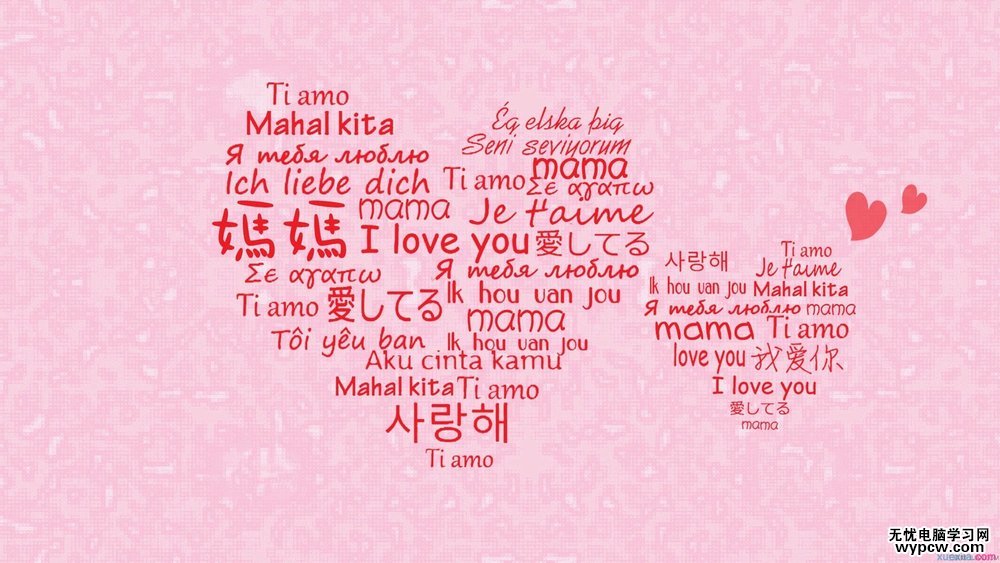 Ti amo
Mahal kita
Я тебя люблю
Ich liebe dich
Ég elska þig
Seni seviyorum
mama
Ti amo
Σε αγαπω
媽媽
mama
Je t'aime
I love you
愛してる
Σε αγαπω
Я тебя люблю
Ti amo
愛してる
Ik hou van jou
mama
Tôi yêu ban
Ik hou van jou
Aku cinta kamu
Mahal kita
Ti amo
사랑해
Ti amo
사랑해
Ti amo
Je t'aime
Ik hou van jou
Mahal kita
Я тебя люблю
mama
mama
Ti amo
love you
我爱你
I love you
愛してる
mama
无忧电脑学习网
wypcw.com